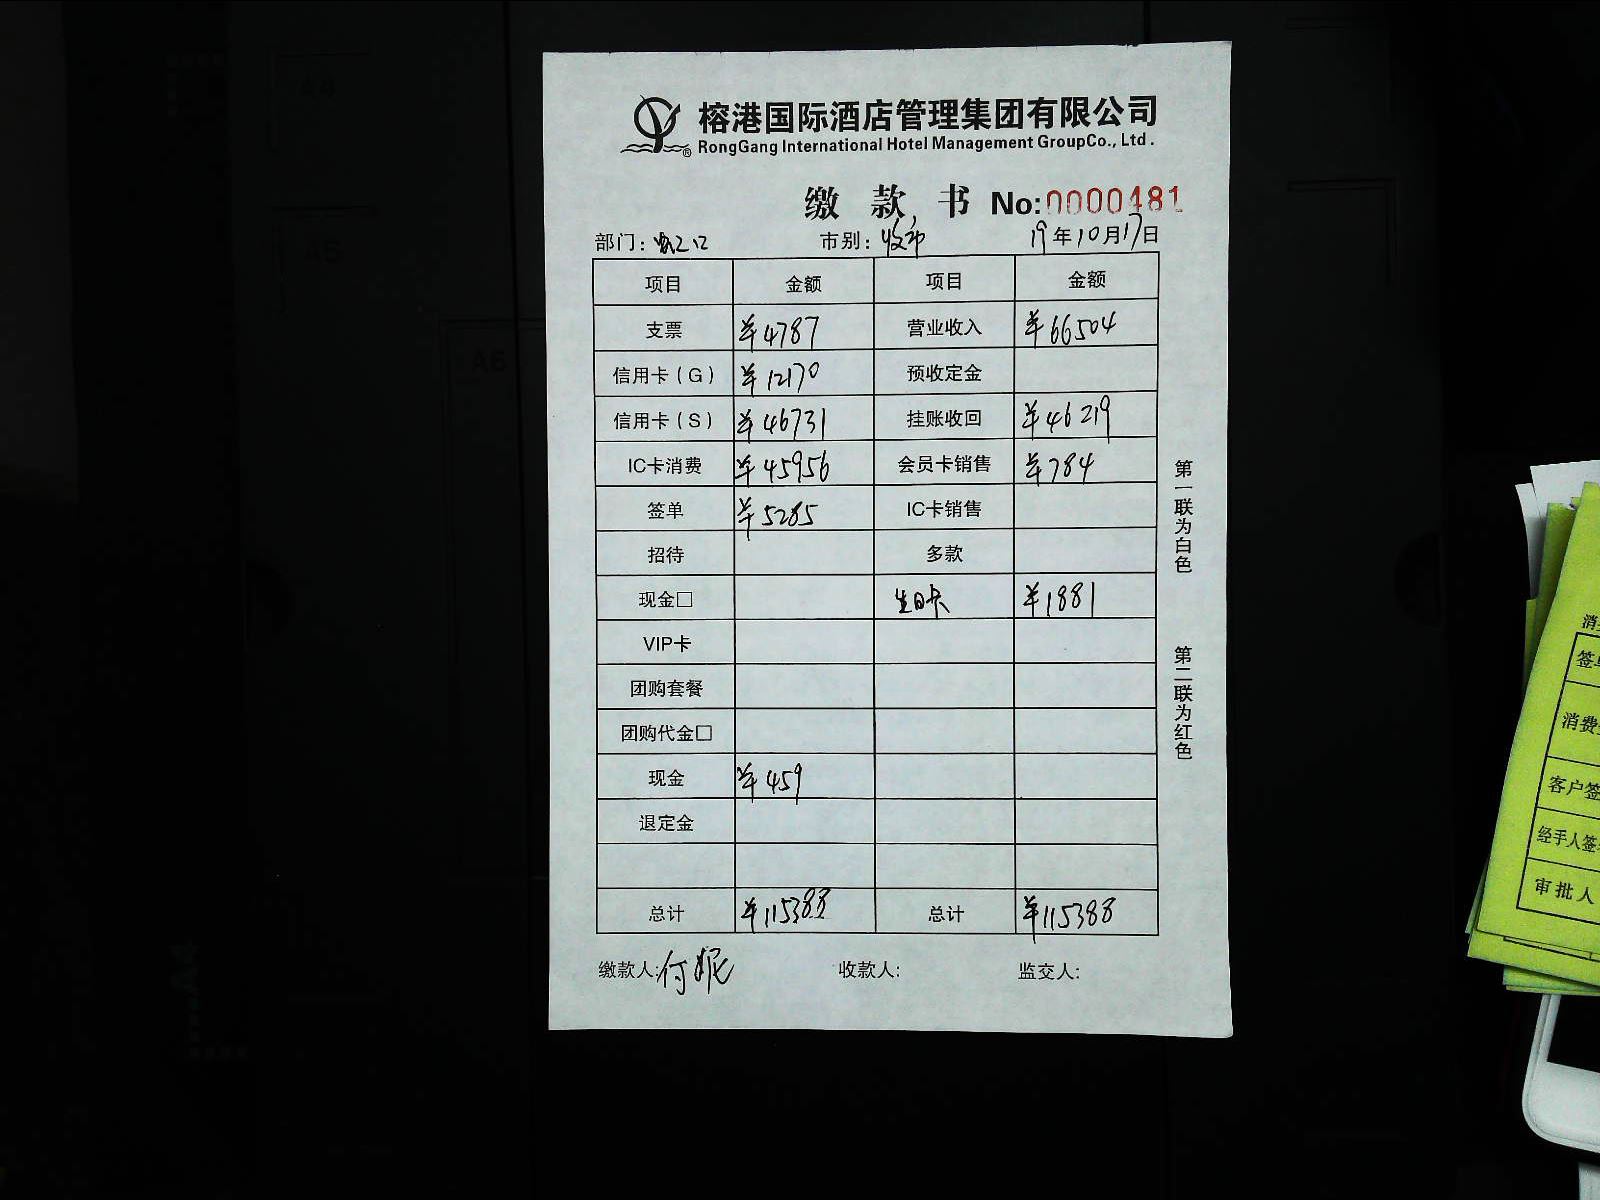 榕港国际酒店管理集团有限公司
RongGang International Hotel Management GroupCo., Ltd.
缴款书 No:0000481
部门: 市别: 收市 19年10月17日
项目 金额 项目 金额
支票 ¥4787 营业收入 ¥66504
信用卡(G) ¥12170 预收定金
信用卡(S) ¥46731 挂账收回 ¥46219
IC卡消费 ¥45956 会员卡销售 ¥784
签单 ¥5285 IC卡销售
招待 多款
现金□ 生日卡 ¥1881
VIP卡
团购套餐
团购代金□
现金 ¥459
退定金
总计 ¥115388 总计 ¥115388
缴款人:付妮 收款人: 监交人:
第一联为白色
第二联为红色
签单
消费
客户签
经手人签
审批人
A4
A5
A6